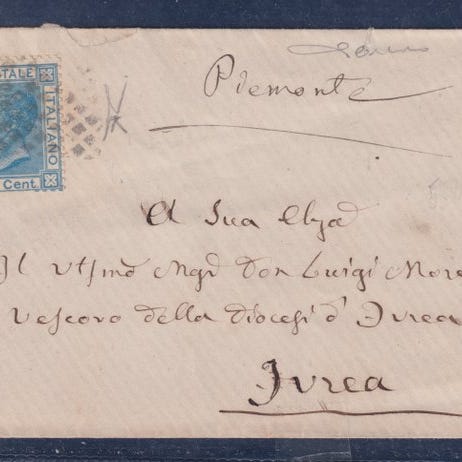 STALE
ITALIANO
Cent.
Piemonte
A Sua
Il Mgr Don Luigi More
Vescovo della Diocesi d'Ivrea
Ivrea